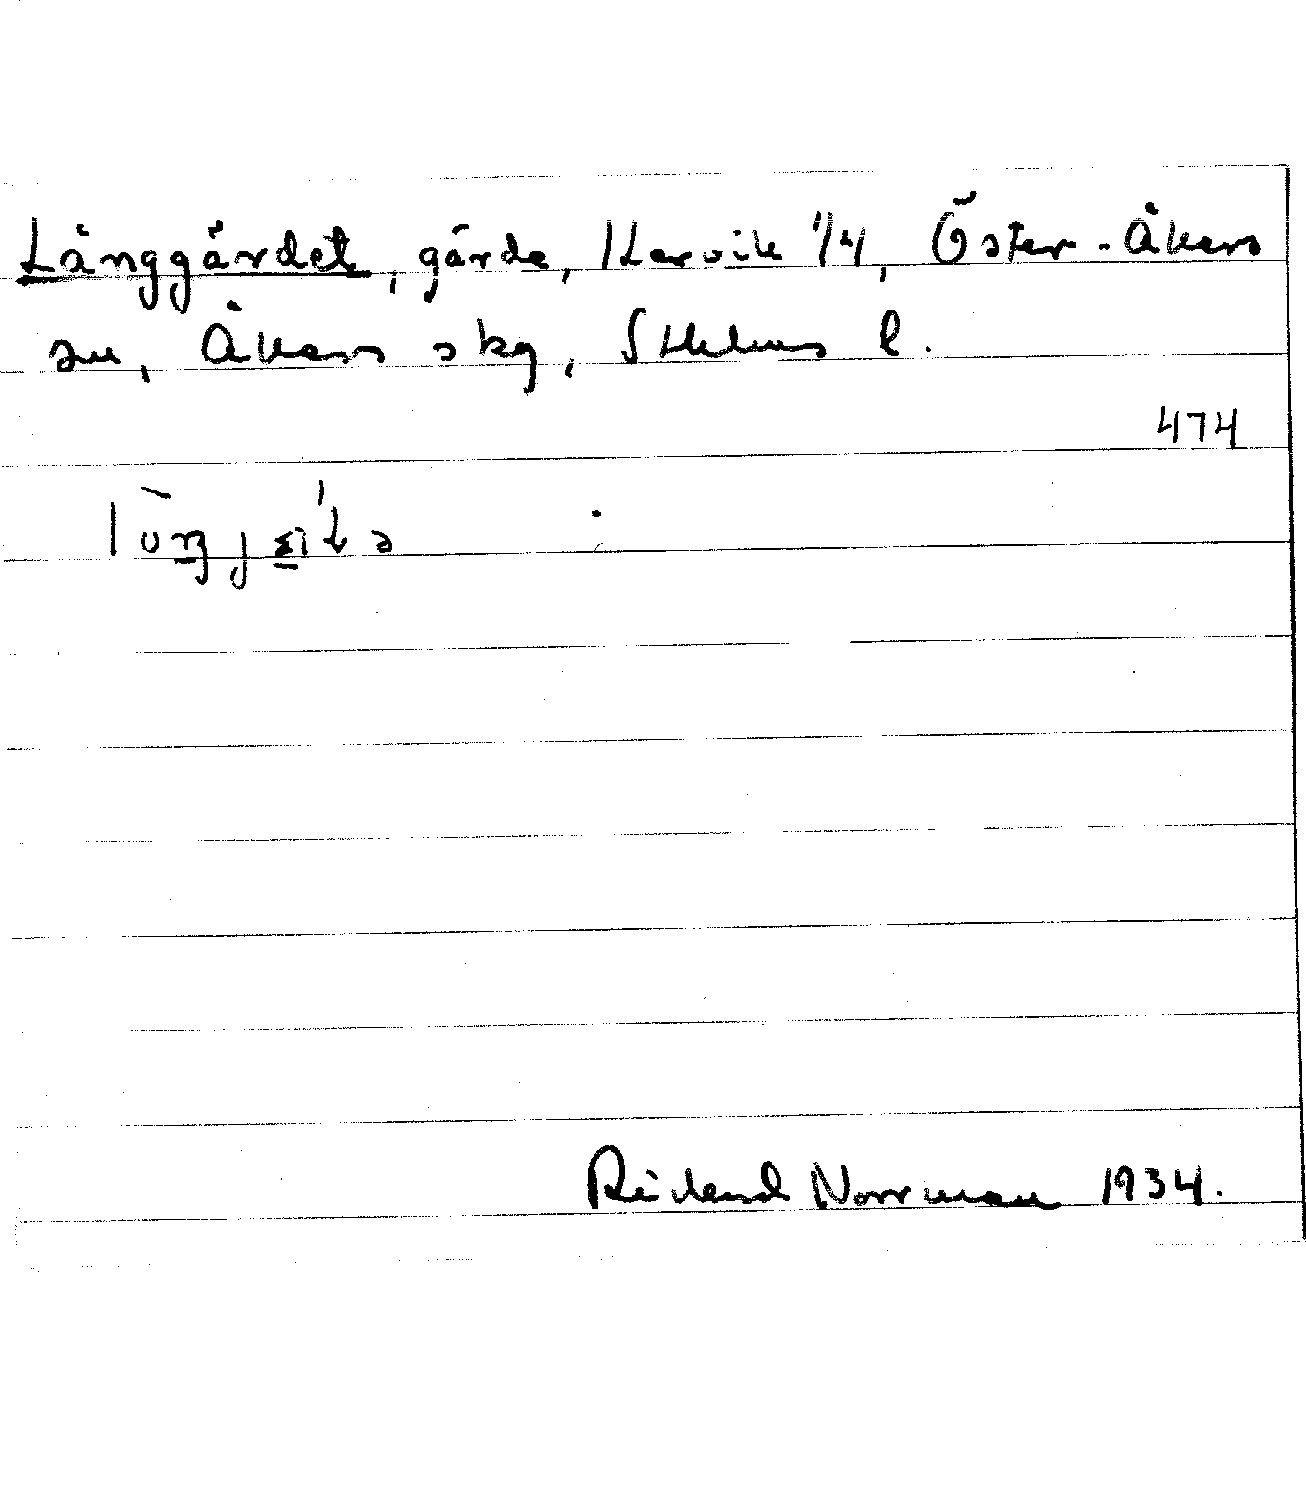 Långgärdet, gärde, Harvik 1/4, Öster-Åkers
sn, Åkers skg, Sthlms l.
474
Rickard Norrman 1934.